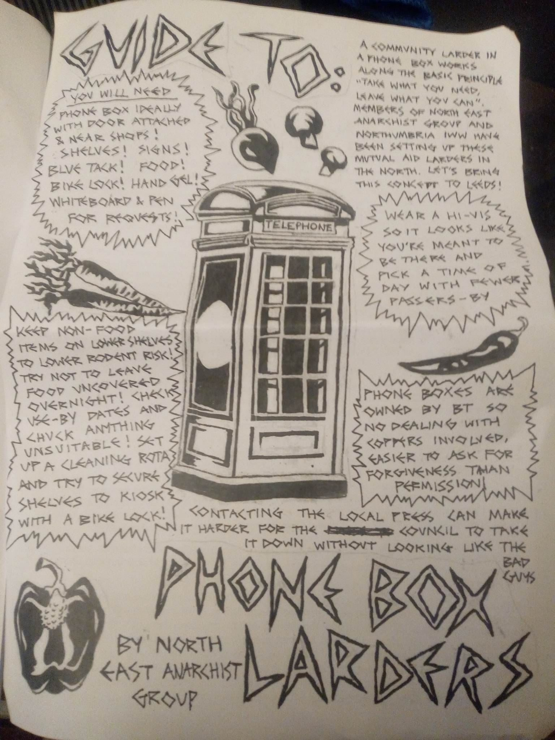 GUIDE TO:
YOU WILL NEED
PHONE BOX IDEALLY
WITH DOOR ATTACHED
& NEAR SHOPS!
SHELVES! SIGNS!
BLUE TACK! FOOD!
BIKE LOCK! HAND GEL!
WHITEBOARD & PEN
FOR REQUESTS!
A COMMUNITY LARDER IN
A PHONE BOX WORKS
ALONG THE BASIC PRINCIPLE
"TAKE WHAT YOU NEED,
LEAVE WHAT YOU CAN".
MEMBERS OF NORTH EAST
ANARCHIST GROUP AND
NORTHUMBRIA IWW HAVE
BEEN SETTING UP THESE
MUTUAL AID LARDERS IN
THE NORTH. LET'S BRING
THIS CONCEPT TO LEEDS!
TELEPHONE
WEAR A HI-VIS
SO IT LOOKS LIKE
YOU'RE MEANT TO
BE THERE AND
PICK A TIME OF
DAY WITH FEWER
PASSERS-BY
KEEP NON-FOOD
ITEMS ON LOWER SHELVES
TO LOWER RODENT RISK!
TRY NOT TO LEAVE
FOOD UNCOVERED
OVERNIGHT! CHECK
USE-BY DATES AND
CHUCK ANYTHING
UNSUITABLE! SET
UP A CLEANING ROTA
AND TRY TO SECURE
SHELVES TO KIOSK
WITH A BIKE LOCK!
PHONE BOXES ARE
OWNED BY BT SO
NO DEALING WITH
COPPERS INVOLVED,
EASIER TO ASK FOR
FORGIVENESS THAN
PERMISSION!
CONTACTING THE LOCAL PRESS CAN MAKE
IT HARDER FOR THE COUNCIL TO TAKE
IT DOWN WITHOUT LOOKING LIKE THE
BAD
GUYS
PHONE BOX
LARDERS
BY NORTH
EAST ANARCHIST
GROUP